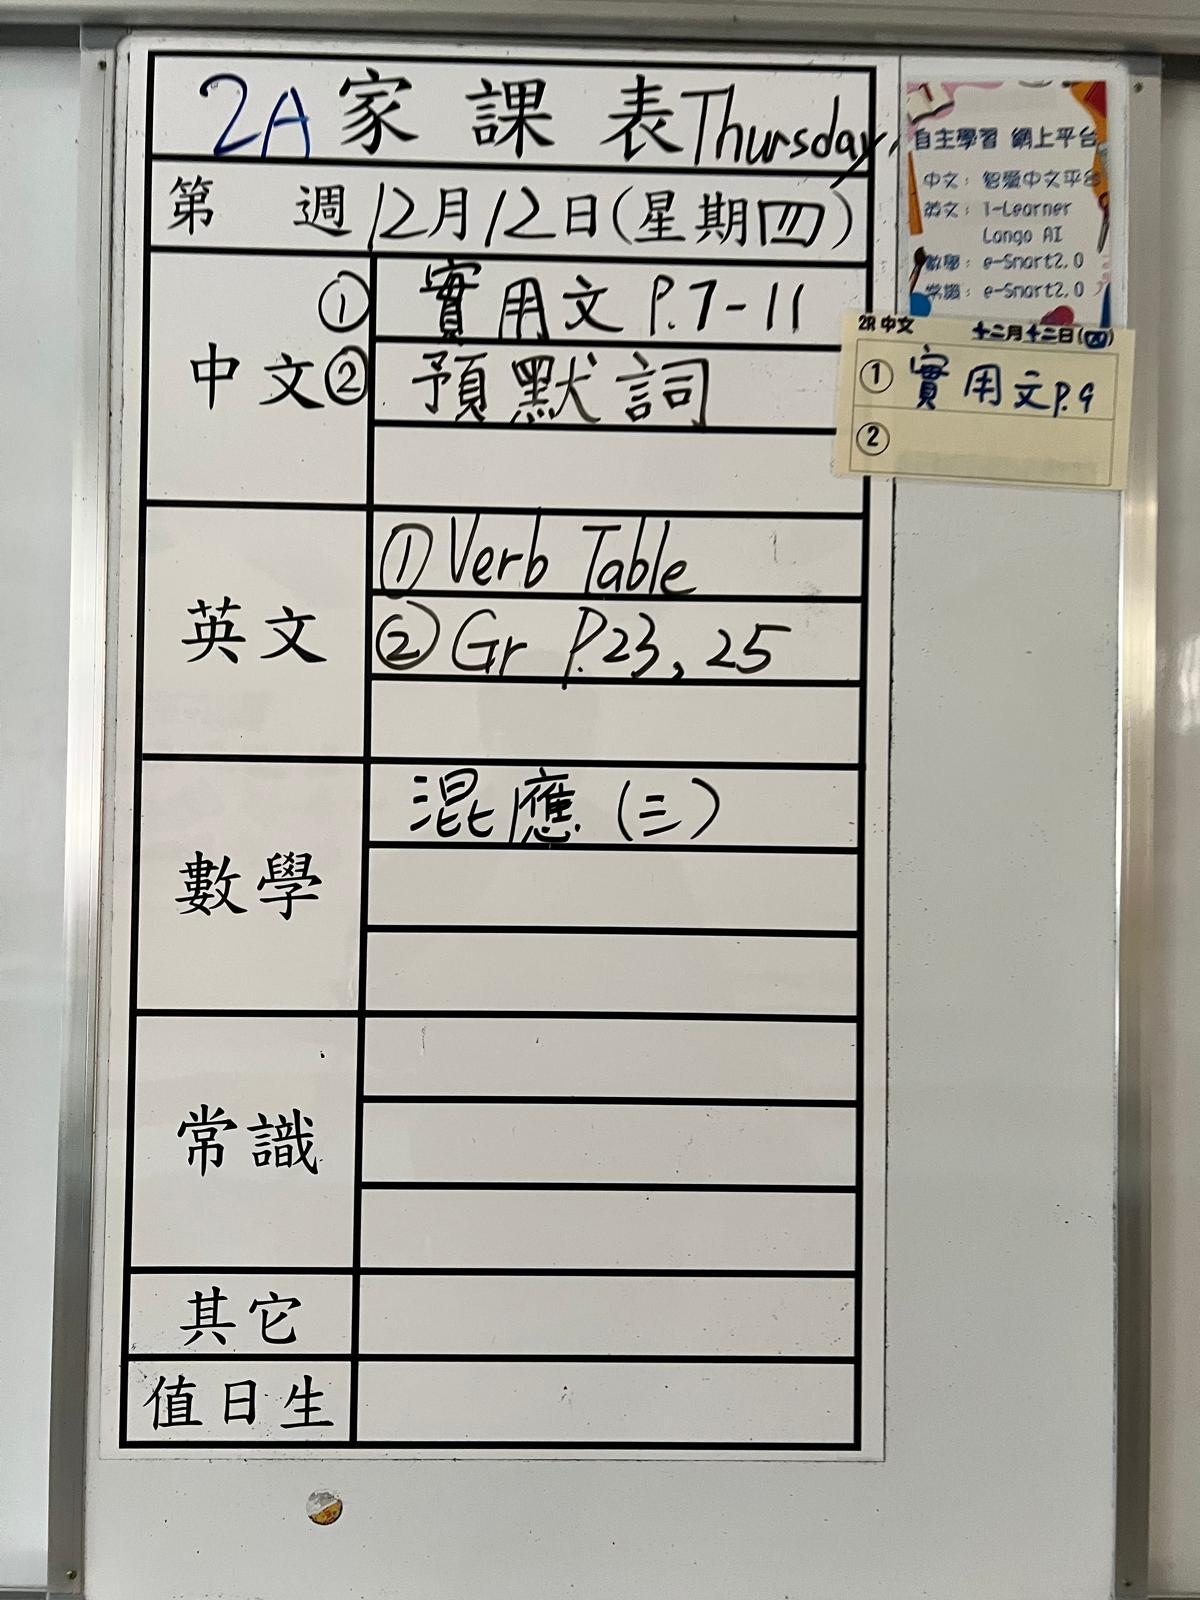 2A 家課表 Thursday
第 週 12月12日(星期四)
中文
① 實用文 P.7-11
② 預默詞
英文
① Verb Table
② Gr P.23, 25
數學
混應(三)
常識
其它
值日生
自主學習 網上平台
中文: 智愛中文平台
英文: i-Learner
Lango AI
數學: e-Smart2.0
常識: e-Smart2.0
2R 中文 十二月十二日(四)
① 實用文 P.9
②